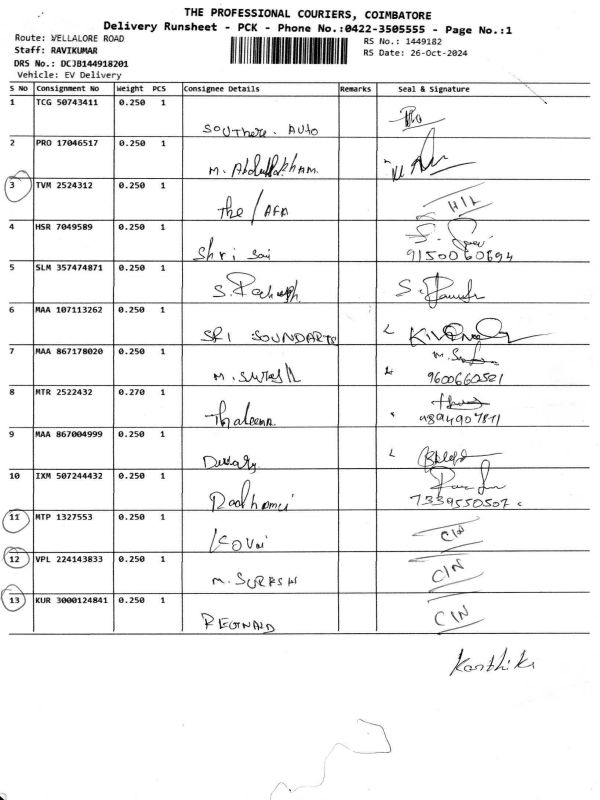 THE PROFESSIONAL COURIERS, COIMBATORE
Delivery Runsheet - PCK - Phone No.:0422-3505555 - Page No.:1
Route: VELLALORE ROAD
RS No.: 1449182
Staff: RAVIKUMAR
RS Date: 26-Oct-2024
DRS No.: DCJB144918201
Vehicle: EV Delivery
S No Consignment No Weight PCS Consignee Details Remarks Seal & Signature
1 TCG 50743411 0.250 1
Southern. Auto
2 PRO 17046517 0.250 1
M.
3 TVM 2524312 0.250 1
The / AFA H/L
4 HSR 7049589 0.250 1
Shri Sai 9150060694
5 SLM 357474871 0.250 1
S.
6 MAA 107113262 0.250 1
SRI SOUNDARTS
7 MAA 867178020 0.250 1
M. Suresh 9600660521
8 MTR 2522432 0.270 1
4894907871
9 MAA 867004999 0.250 1
10 IXM 507244432 0.250 1
7339550507
11 MTP 1327553 0.250 1
Kovai C/N
12 VPL 224143833 0.250 1
M. SURESH C/N
13 KUR 3000124841 0.250 1
REGNALD C/N
Karthik